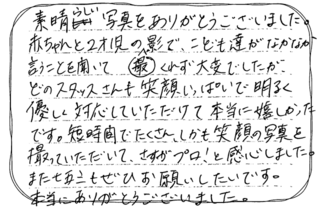 素晴らしい写真をありがとうございました。
赤ちゃんと2才児の影で、こども達がなかなか
言うことを聞いて(撮)くれず大変でしたが
どのスタッフさんも笑顔いっぱいで明るく
優しく対応していただけて本当に嬉しかった
です。短時間でたくさん、しかも笑顔の写真を
撮っていただいて、さすがプロ!と感心しました。
またぜひお願いしたいです。
本当にありがとうございました。